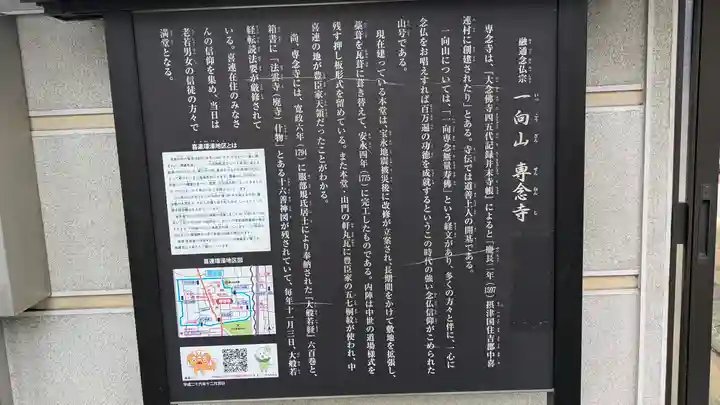 融通念仏宗
一向山 専念寺
いっこうざん せんねんじ
専念寺は、『大念佛寺四五代記録并末寺帳』によると「慶長二年(1597)摂津国住吉郡中喜
連村に創建されたり」とある。寺伝では道善上人の開基である。
一向山については、「一向専念無量寿佛」という経文があり、多くの方々と伴に、一心に
念仏をお唱えすれば百万遍の功徳を成就するというこの時代の強い念仏信仰がこめられた
山号である。
現在建っている本堂は、宝永地震被災後に改修が立案され、長期間をかけて敷地を拡張し、
藁葺を瓦葺に葺き替えて、安永四年(1775)に完工したものである。内陣は中世の道場様式を
残す押し板形式を留めている。また本堂・山門の軒丸瓦に豊臣家の五七桐紋が使われ、中
喜連の地が豊臣家天領だったことがわかる。
尚、専念寺には、寛政六年(1794)に服部規氏居士により奉納された『大般若経』六百巻と、
箱書に『法雲寺(廃寺)什物』とある十六善神図が残されていて、毎年十一月三日、大般若
経転読法要が厳修されて
いる。喜連在住のみなさ
んの信仰を集め、当日は
老若男女の信徒の方々で
満堂となる。
喜連環濠地区とは
喜連環濠地区図
平成二十六年十二月吉日